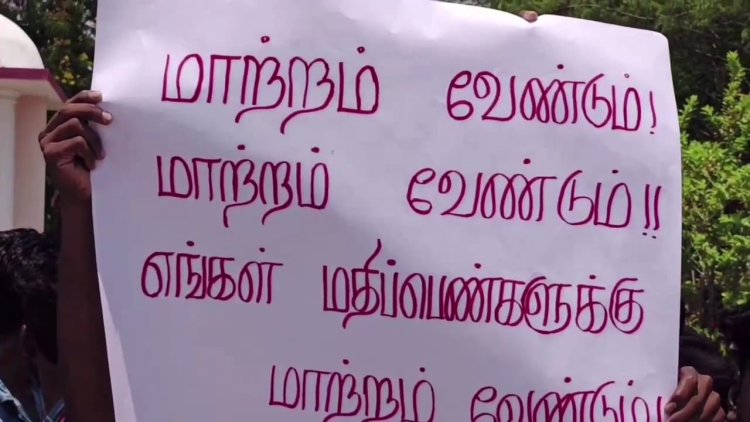 மாற்றம் வேண்டும்!
மாற்றம் வேண்டும்!!
எங்கள் மதிப்பெண்களுக்கு
மாற்றம் வேண்டும்!